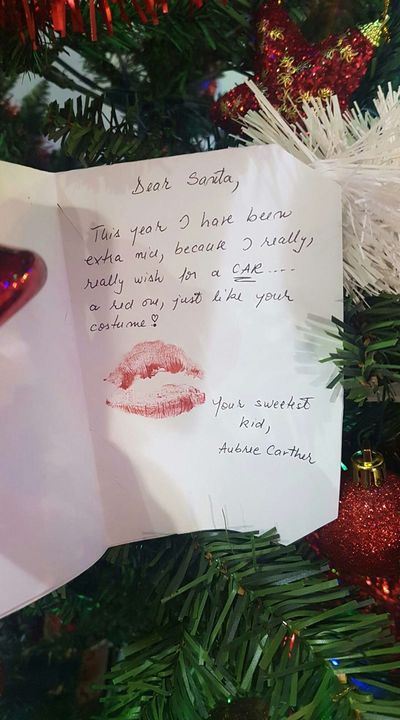 Dear Santa,
This year I have been
extra nice, because I really,
really wish for a CAR.....
a red one, just like your
costume!
Your sweetest
kid,
Aubree Carther